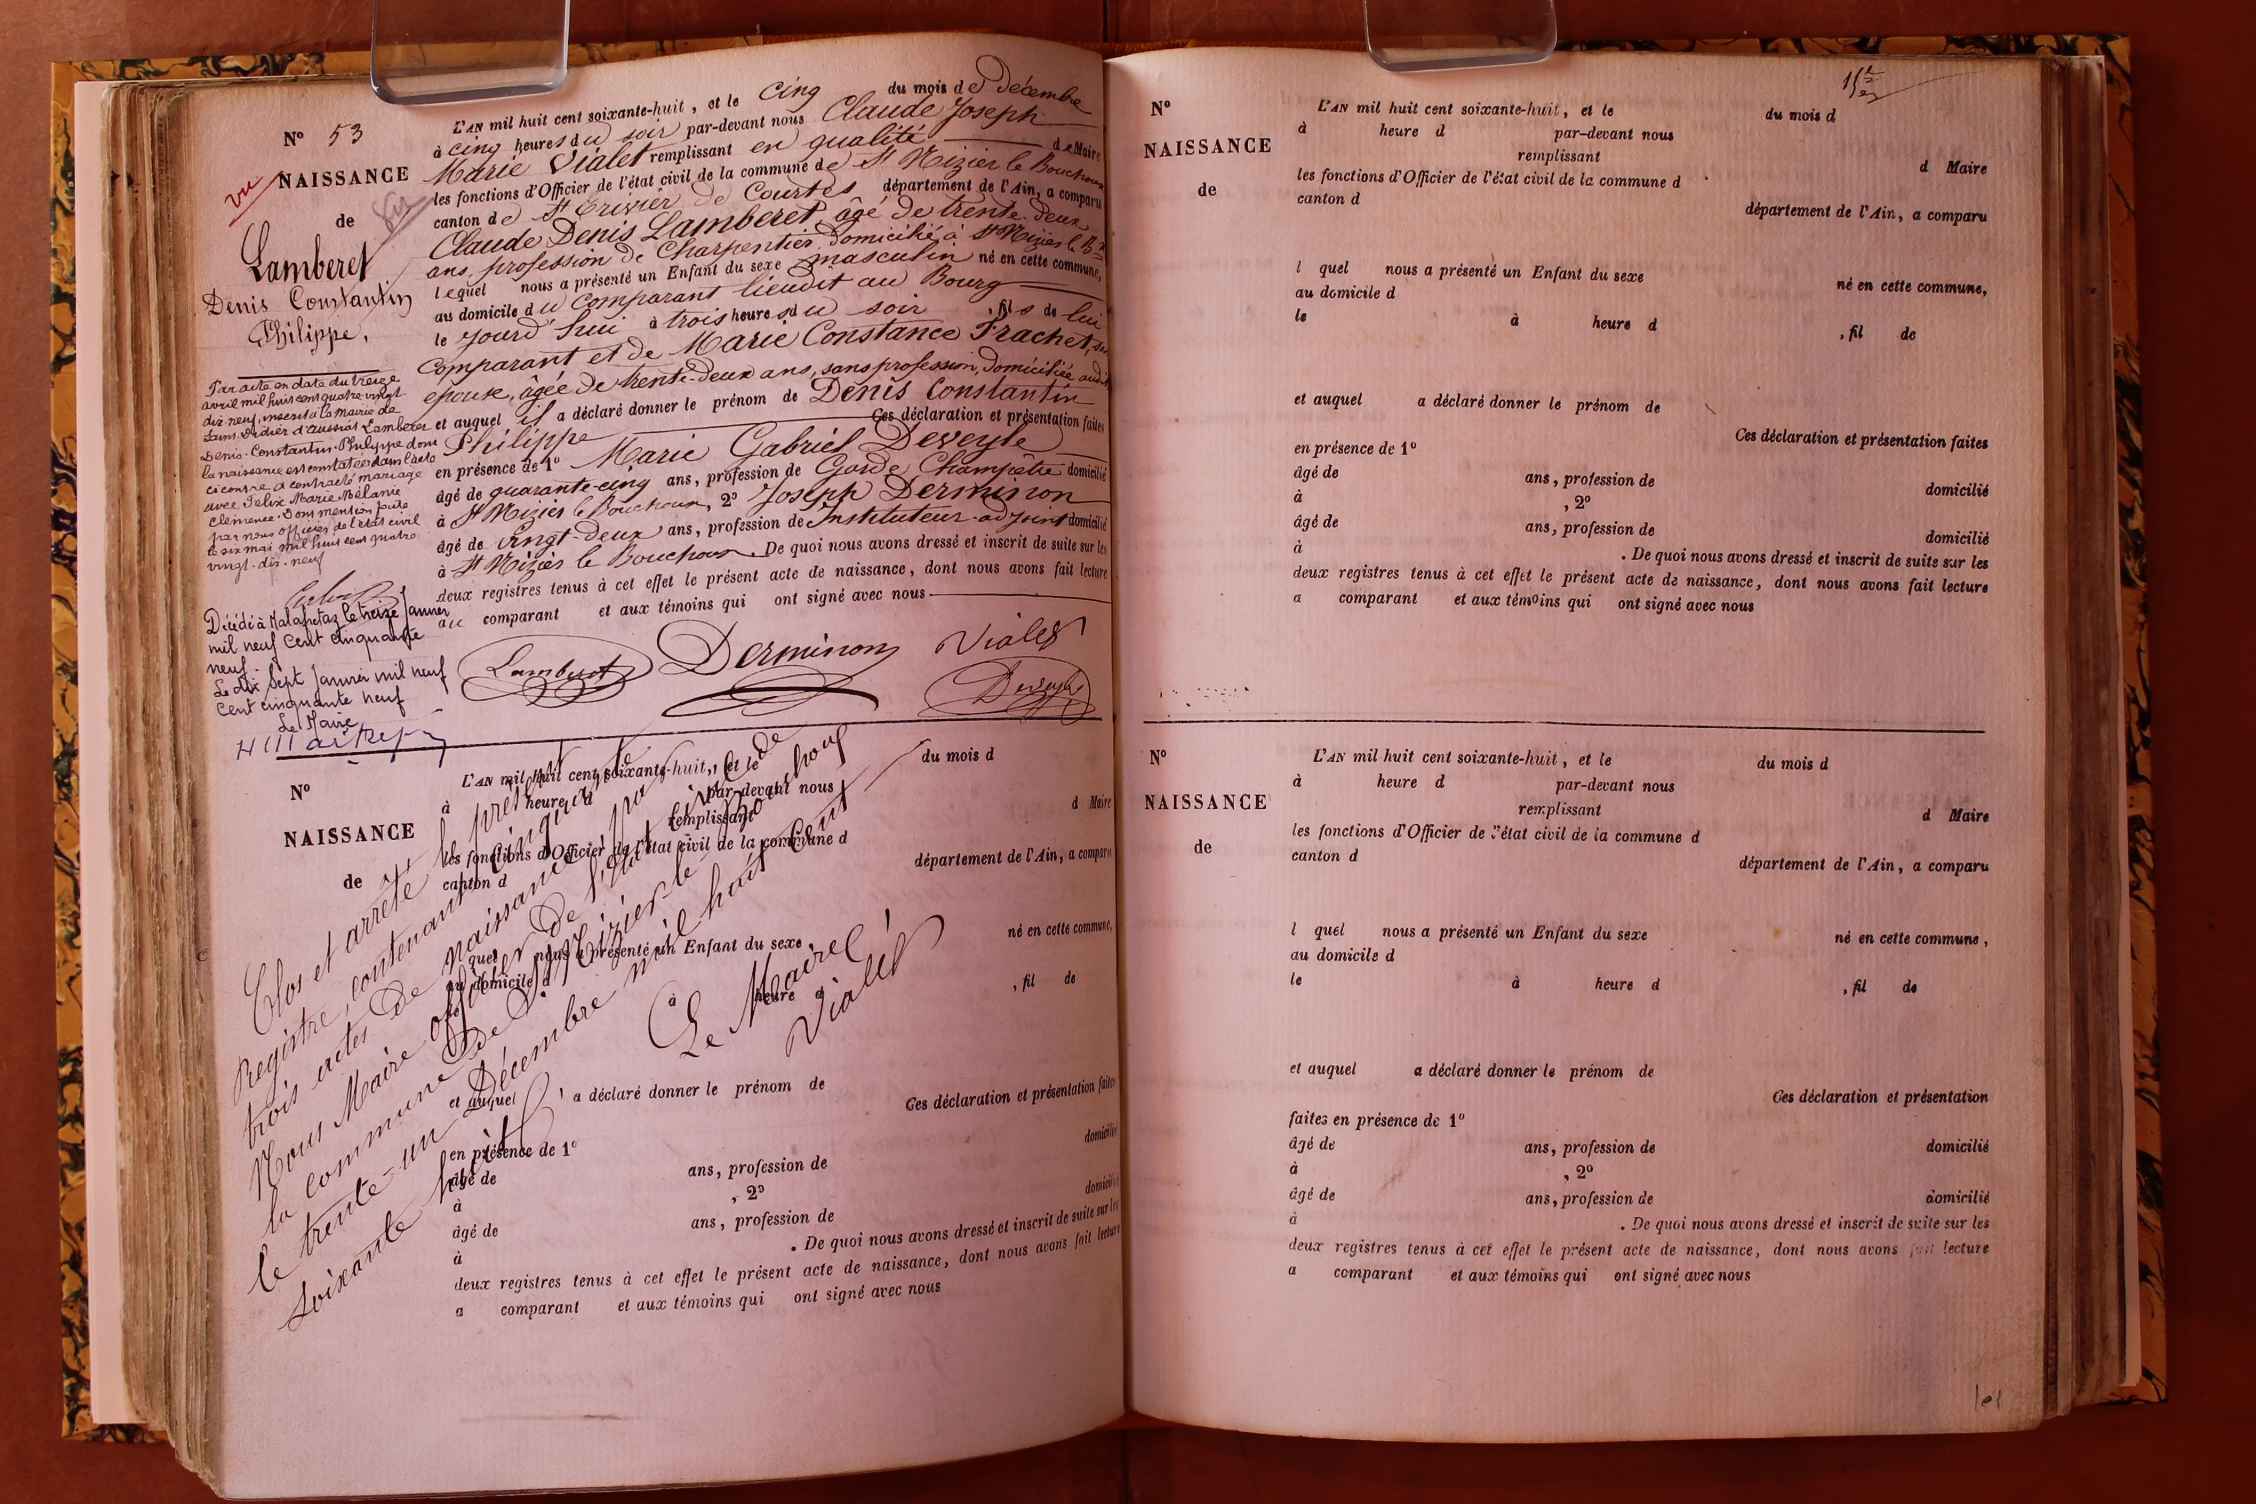 N° 53
NAISSANCE
de
vu
Lamberet
Denis Constantin
Philippe,
L'AN mil huit cent soixante-huit, et le cinq du mois de Décembre
à cinq heures du soir par-devant nous Claude Joseph
Marie Vialet remplissant en qualité de Maire
les fonctions d'Officier de l'état civil de la commune de St Nizier le Bouchoux
canton de St Trivier de Courtes département de l'Ain, a comparu
Claude Denis Lamberet, âgé de trente-deux
ans, profession de Charpentier domicilié à St Nizier le Bx
lequel nous a présenté un Enfant du sexe masculin né en cette commune,
au domicile du comparant lieudit au Bourg
le jourd'hui à trois heures du soir, fils de lui
comparant et de Marie Constance Frachet, son
épouse, âgée de trente-deux ans, sans profession, domiciliée audit
et auquel il a déclaré donner le prénom de Denis Constantin
Philippe Ces déclaration et présentation faites
en présence de 1° Marie Gabriel Deveyle domicilié
âgé de quarante-cinq ans, profession de Garde Champêtre
à St Nizier le Bouchoux, 2° Joseph Derminon
âgé de vingt-deux ans, profession de Instituteur-adjoint domicilié
à St Nizier le Bouchoux. De quoi nous avons dressé et inscrit de suite sur les
deux registres tenus à cet effet le présent acte de naissance, dont nous avons fait lecture
au comparant et aux témoins qui ont signé avec nous
Lamberet Derminon Vialet
Deveyle
Par acte en date du treize
avril mil huit cent quatre-vingt
dix-neuf, inscrit à la mairie de
Saint-Didier d'Aussiat Lamberet
Denis-Constantin-Philippe dont
la naissance est constatée dans l'acte
ci contre a contracté mariage
avec Felix Marie Mélanie
Clémence. Dont mention faite
par nous officier de l'état civil
le six mai mil huit cent quatre
vingt-dix-neuf
Décédé à Malafretaz le treize Janvier
mil neuf Cent cinquante
neuf.
Le dix sept Janvier mil neuf
Cent cinquante neuf
Le Maire
N°
NAISSANCE
de
L'AN mil huit cent soixante-huit, et le du mois d
à heure d par-devant nous
remplissant d Maire
les fonctions d'Officier de l'état civil de la commune d
canton d département de l'Ain, a comparu
quel nous a présenté un Enfant du sexe né en cette commune,
au domicile d
à heure d , fil de
et auquel a déclaré donner le prénom de
Ces déclaration et présentation faites
en présence de 1°
âgé de ans, profession de domicilié
à , 2°
âgé de ans, profession de domicilié
à . De quoi nous avons dressé et inscrit de suite sur les
deux registres tenus à cet effet le présent acte de naissance, dont nous avons fait lecture
a comparant et aux témoins qui ont signé avec nous
Clos et arrêté le présent
Registre, contenant cinquante
trois actes de naissance par
Nous Maire officier de l'état civil de
la commune de St Nizier-le-Bouchoux
le trente-un Décembre mil huit cent
soixante huit
Le Maire
Vialet
N°
NAISSANCE
de
L'AN mil huit cent soixante-huit, et le du mois d
à heure d par-devant nous
remplissant d Maire
les fonctions d'Officier de l'état civil de la commune d
canton d département de l'Ain, a comparu
l quel nous a présenté un Enfant du sexe né en cette commune,
au domicile d
le à heure d , fil de
et auquel a déclaré donner le prénom de
Ces déclaration et présentation faites
en présence de 1°
âgé de ans, profession de domicilié
à , 2°
âgé de ans, profession de domicilié
à . De quoi nous avons dressé et inscrit de suite sur les
deux registres tenus à cet effet le présent acte de naissance, dont nous avons fait lecture
a comparant et aux témoins qui ont signé avec nous
N°
NAISSANCE
de
L'AN mil huit cent soixante-huit, et le du mois d
à heure d par-devant nous
remplissant d Maire
les fonctions d'Officier de l'état civil de la commune d
canton d département de l'Ain, a comparu
l quel nous a présenté un Enfant du sexe né en cette commune,
au domicile d
le à heure d , fil de
et auquel a déclaré donner le prénom de
Ces déclaration et présentation
faites en présence de 1°
âgé de ans, profession de domicilié
à , 2°
âgé de ans, profession de domicilié
à . De quoi nous avons dressé et inscrit de suite sur les
deux registres tenus à cet effet le présent acte de naissance, dont nous avons fait lecture
a comparant et aux témoins qui ont signé avec nous